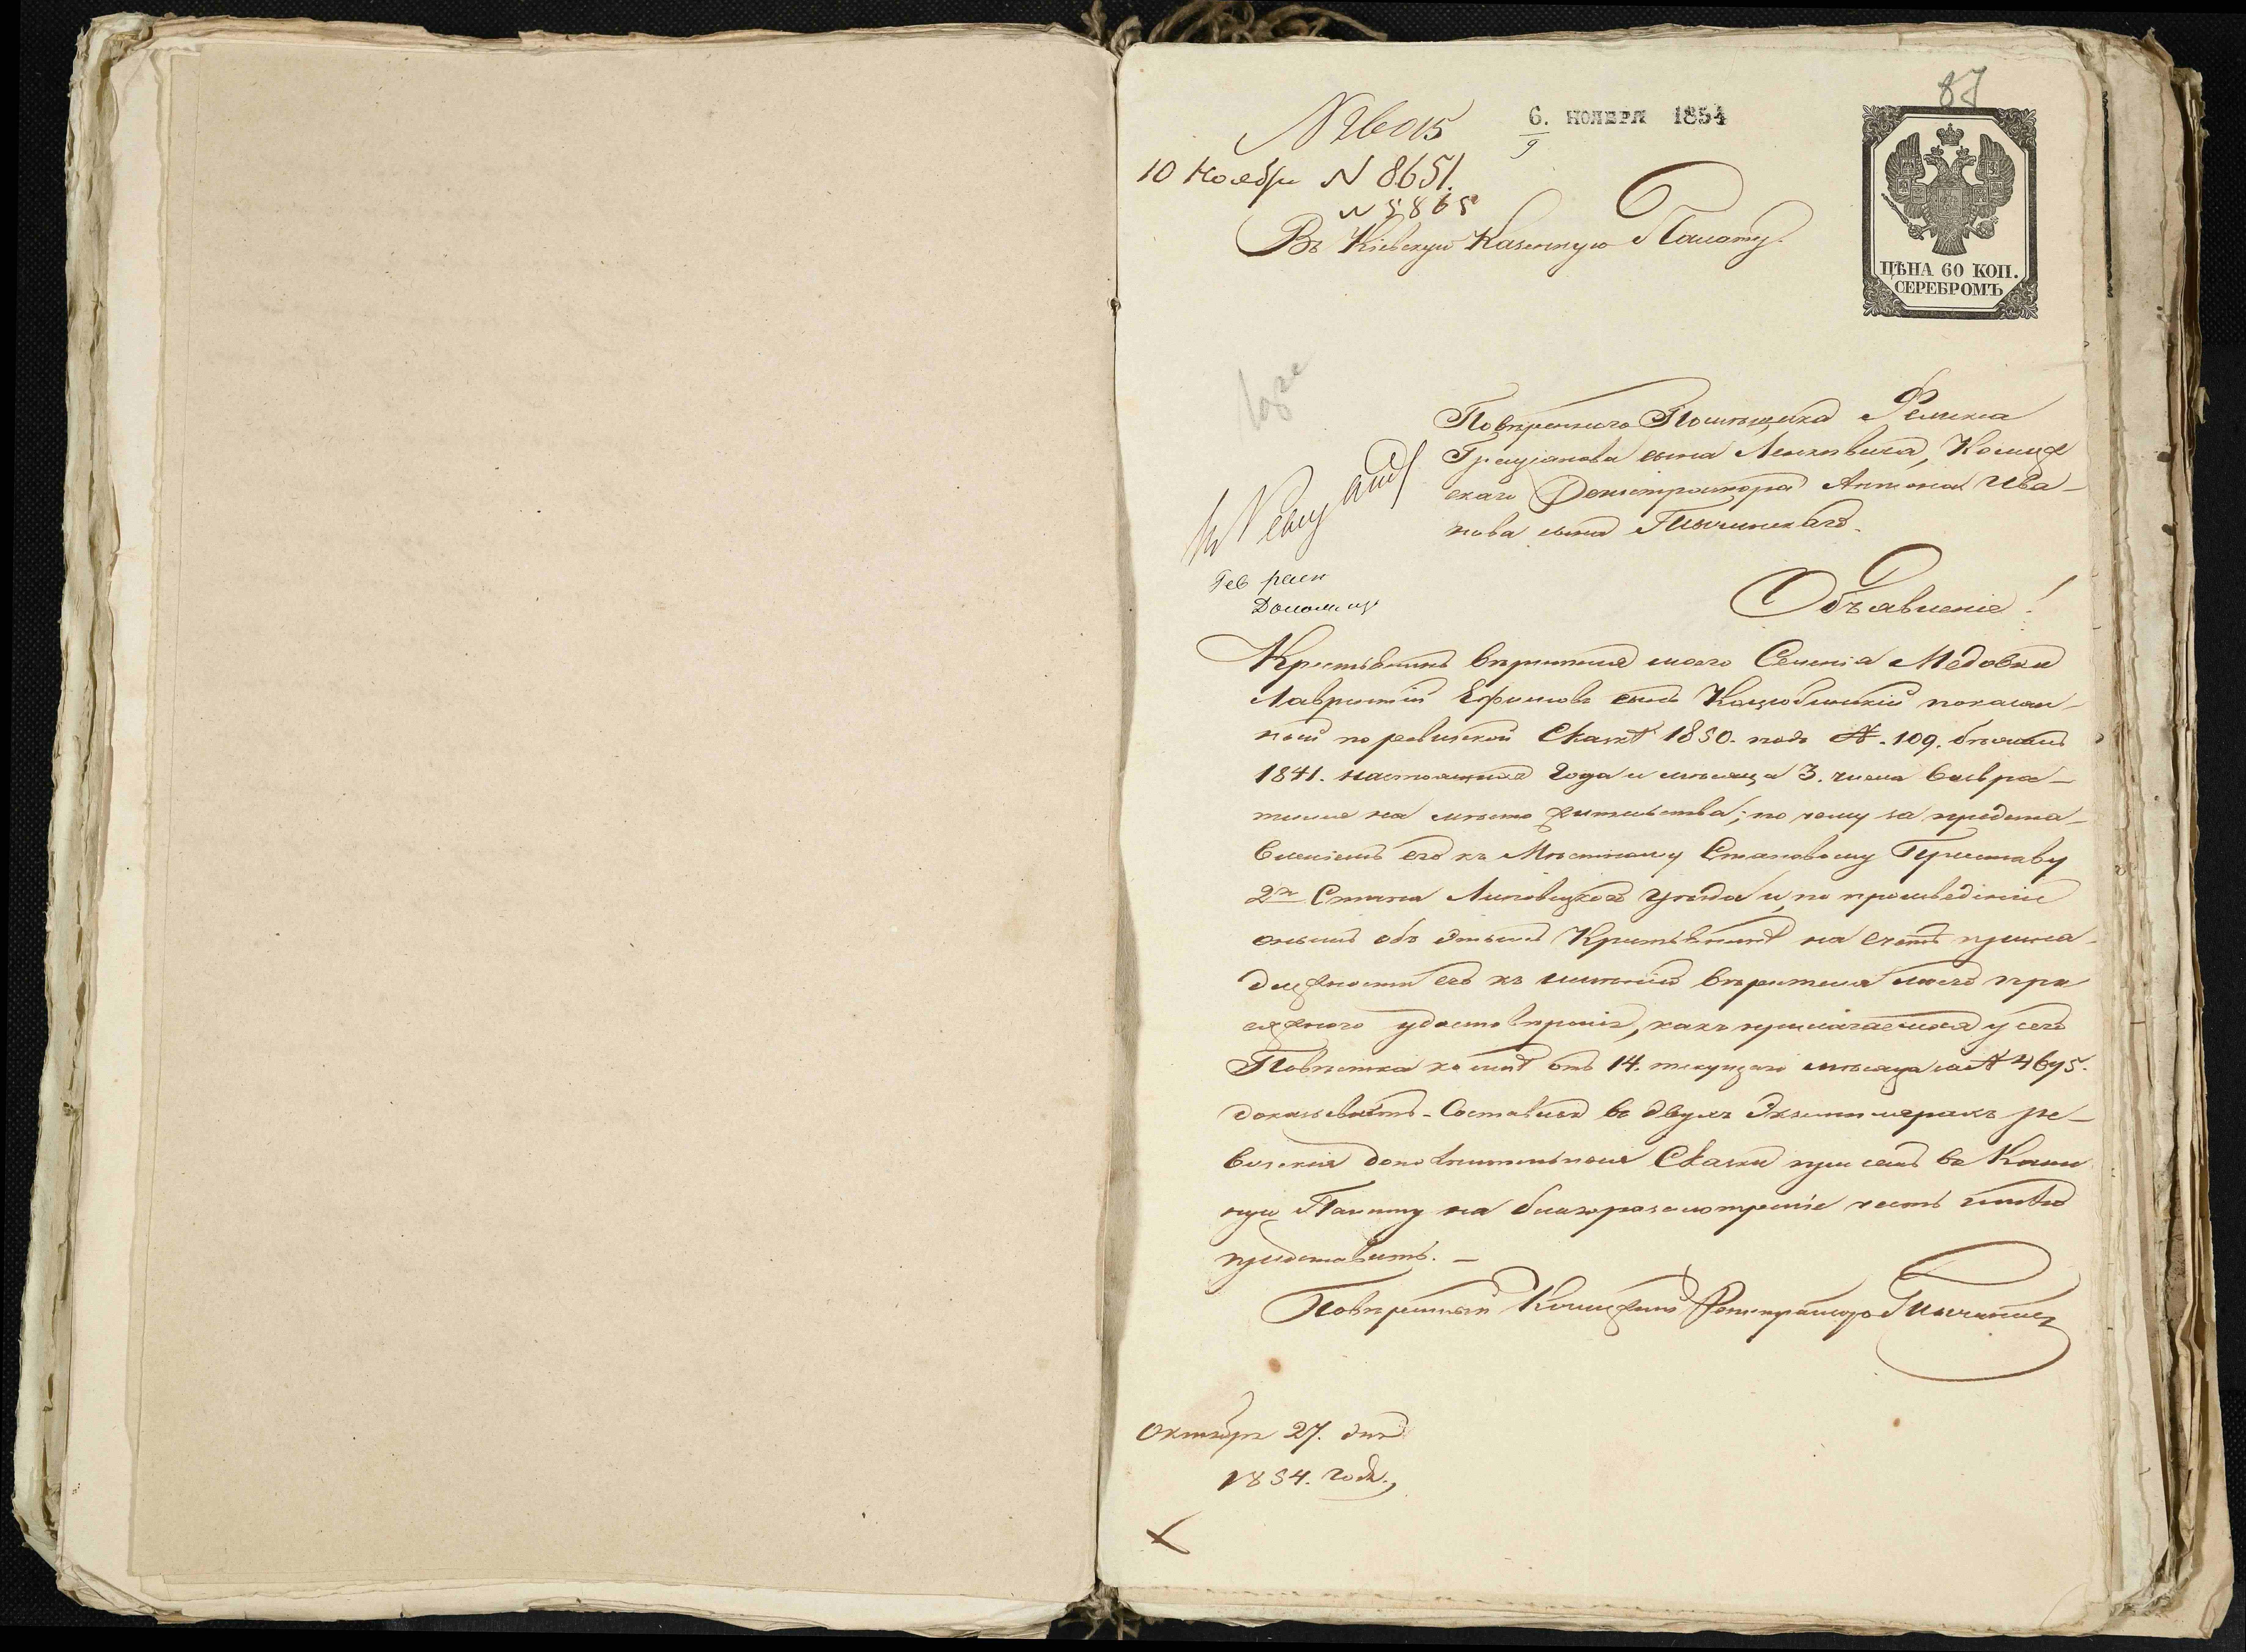 87
№ 26015
6. НОЯБРЯ 1854
9
10 Ноября N 8651.
N 5865
Въ Кіевскую Казенную Палату.
ЦѢНА 60 КОП.
СЕРЕБРОМЪ
Повѣреннаго Помѣщика Феликса
Граціанова сына Ленкевича, Коллеж
скаго Регистратора Антона Ива-
нова сына
Объявленіе!
Крестьянинъ вѣрителя моего Селенія Медовки
Лаврентій Ефимовъ сынъ Коцюбинскій показан-
ный по ревизской Сказкѣ 1850. подъ №. 109. бѣжалъ
1841. настоящаго года и мѣсяца 3. числа возвра-
тился на мѣсто жительства; по чему за предста-
вленіемъ его къ Мѣстному Становому Приставу
2го Стана Липовецкаго уѣзда и, по произведеніи
онымъ объ этомъ Крестьянинѣ на счетъ прина-
длежности его къ имѣнію вѣрителя моего при
сяжнаго удостовѣренія, какъ прилагаемая у сего
Повѣстка ко мнѣ отъ 14. текущаго мѣсяца за №
доказываетъ. Составленныя въ двухъ Экземплярахъ ре-
визскія дополнительныя Сказки при семъ въ Казен
ную Палату на благоразсмотреніе честь имѣю
представить. —
Повѣренный Коллежскій Регистраторъ
Октября 27. дня
1854. года.